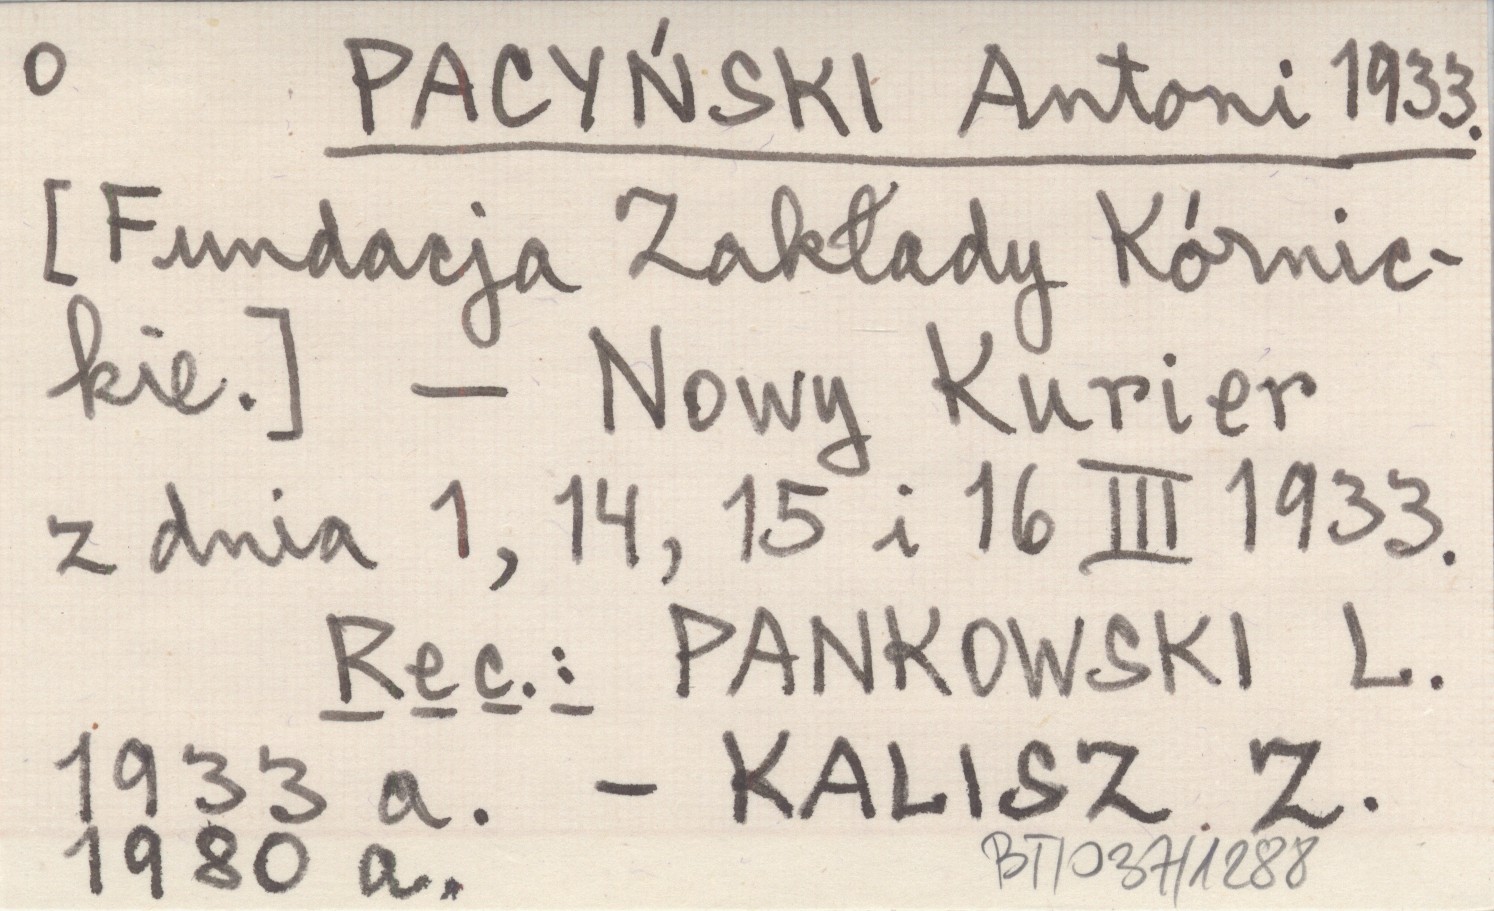 o PACYŃSKI Antoni 1933.
[Fundacja Zakłady Kórnic-
kie.] — Nowy Kurier
z dnia 1, 14, 15 i 16 III 1933.
Rec.: PANKOWSKI L.
1933 a. – KALISZ Z.
1980 a.
BT/037/1288